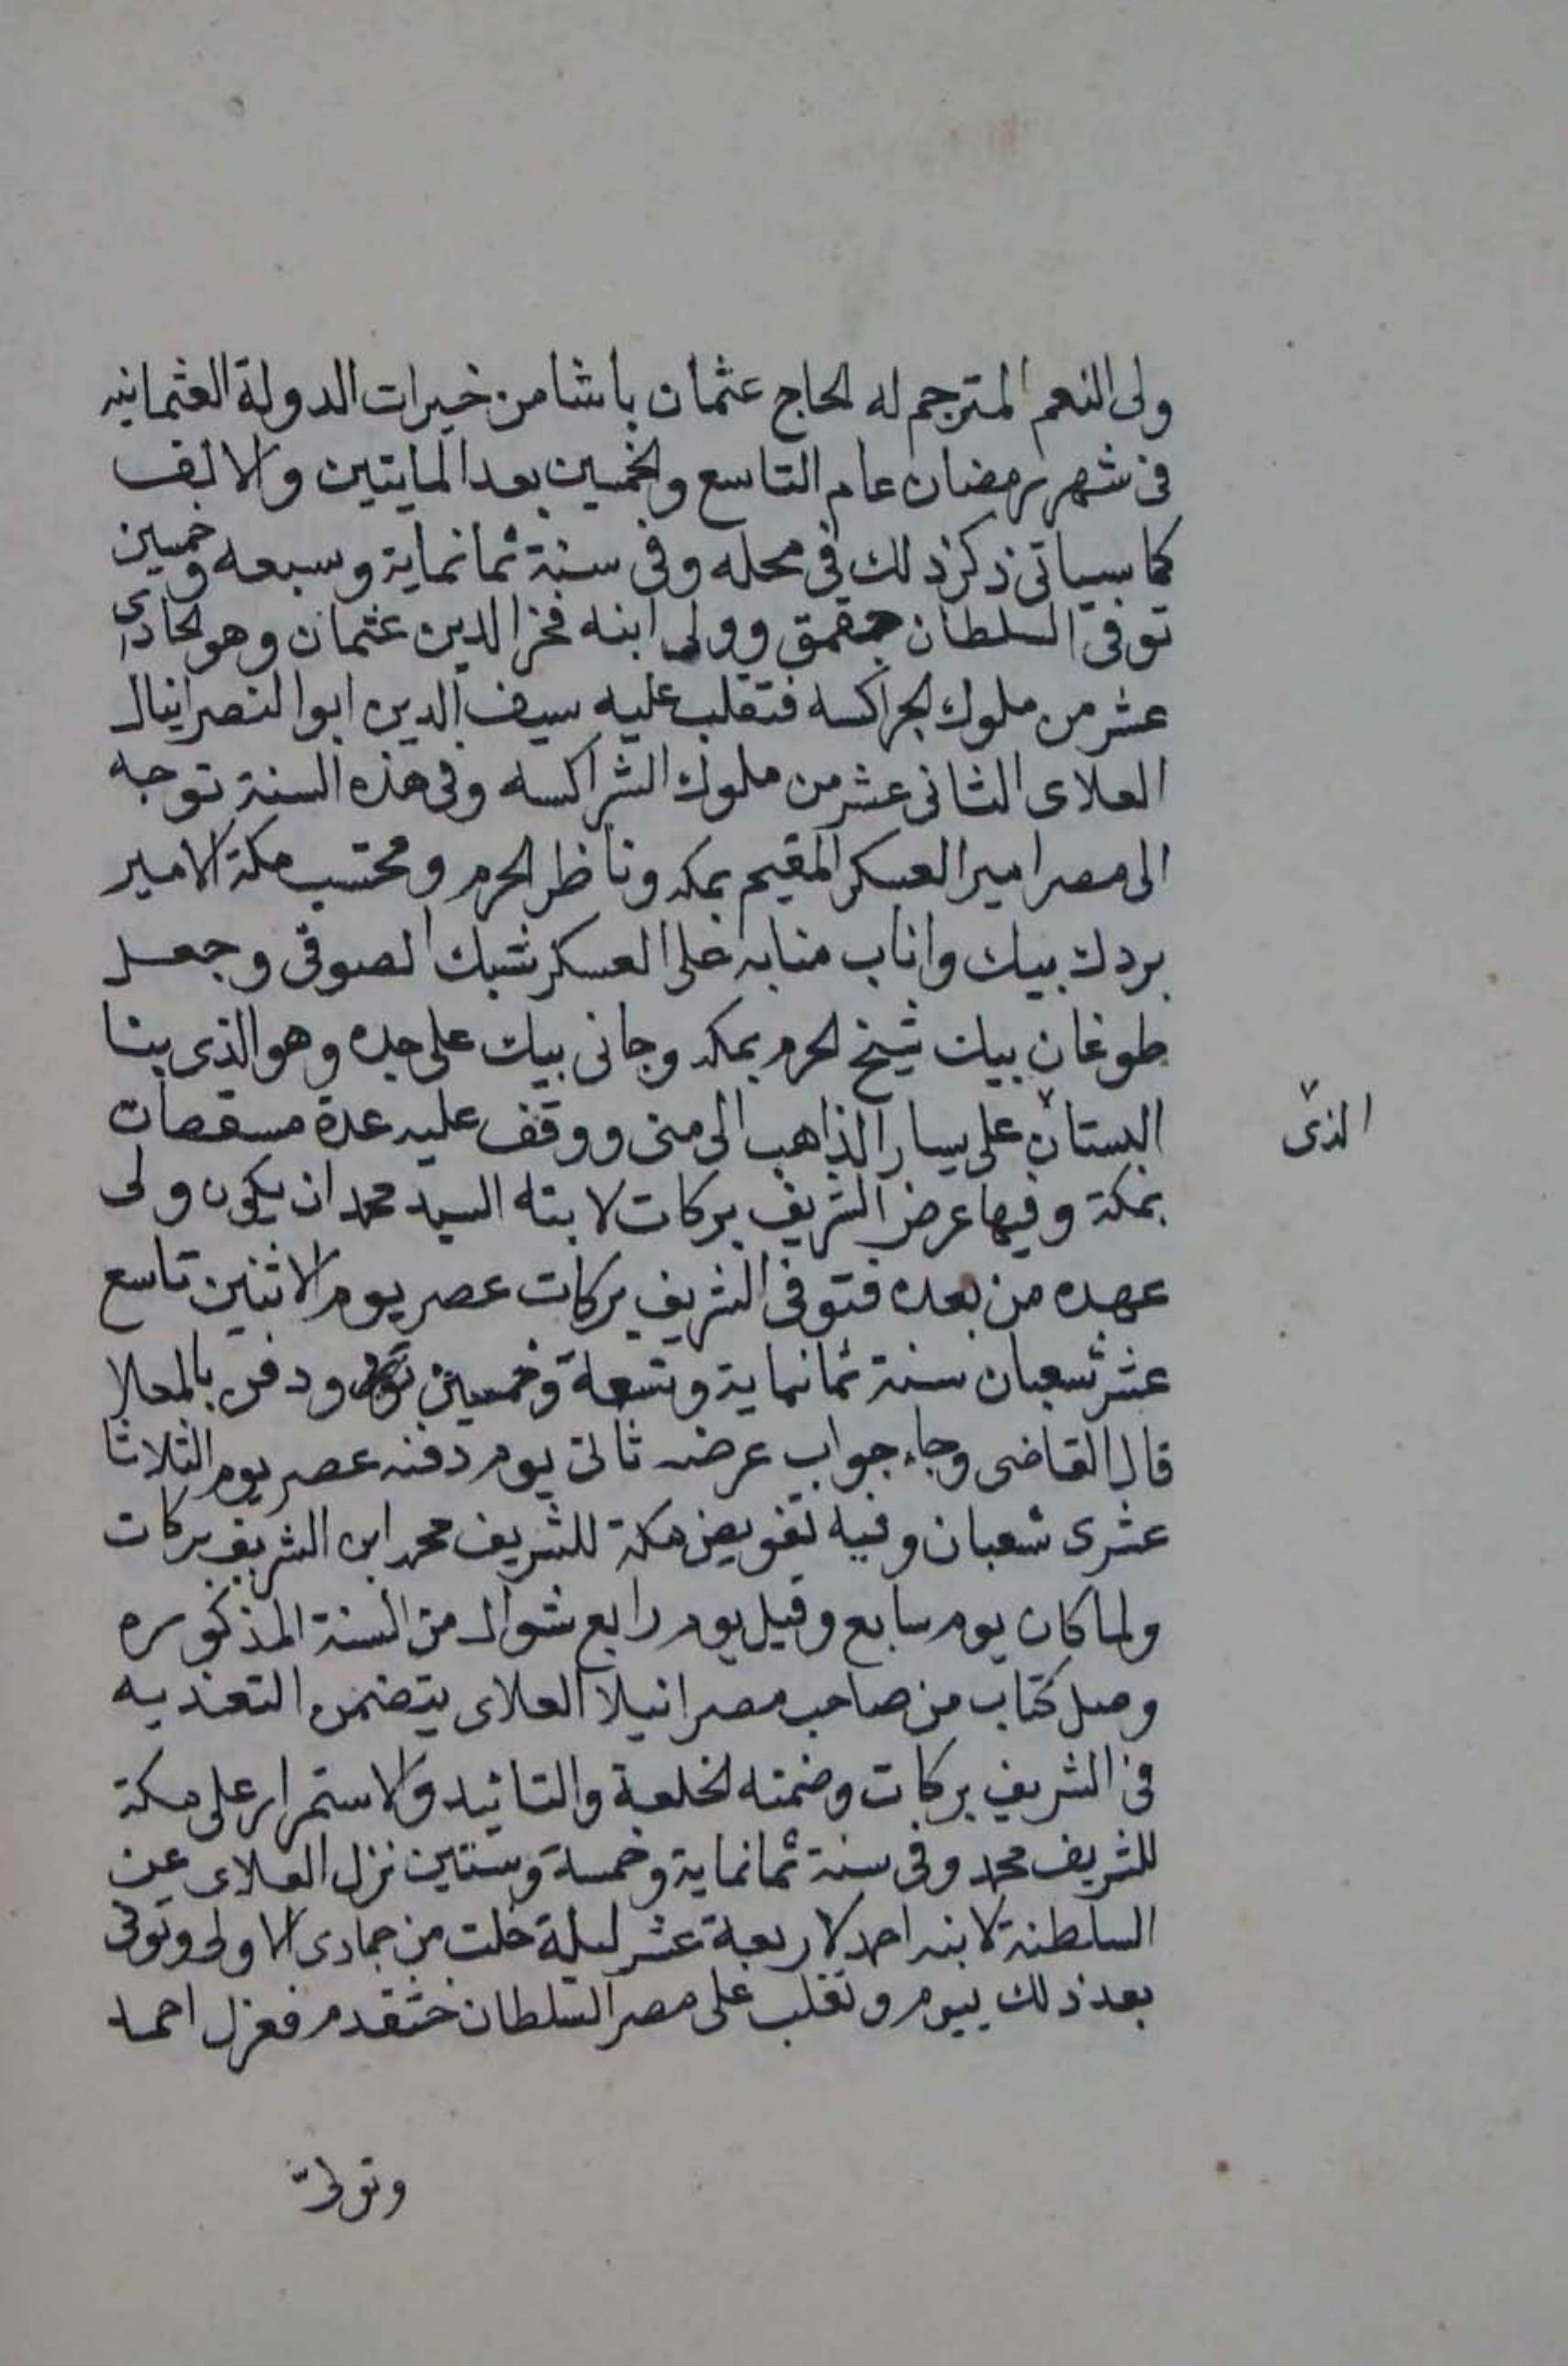 ولى النعم المترجم له الحاج عثمان باشا من خيرات الدولة العثمانيه
فى شهر رمضان عام التاسع والخمسين بعد المايتين والالف
كما سياتى ذكر ذلك فى محله وفى سنة ثمانماية وسبعه وخمسين
توفى السلطان جقمق وولى ابنه فخر الدين عثمان وهو الحادى
عشر من ملوك الجراكسه فتغلب عليه سيف الدين ابو النصر اينال
العلاى الثانى عشر من ملوك الشراكسه وفى هذه السنة توجه
الى مصر امير العسكر المقيم بمكه وناظر الحرم ومحتسب مكة الامير
بردك بيك واناب منابه على العسكر شبك الصوفى وجعل
طوغان بيك شيخ الحرم بمكه وجانى بيك على جده وهو الذى بنا
البستان على يسار الذاهب الى منى ووقف عليه عدة مسقفات
الذى
بمكة وفيها عرض الشريف بركات لابنه السيد محمد ان يكون ولى
عهده من بعده فتوفى الشريف بركات عصر يوم الاثنين تاسع
عشر شعبان سنة ثمانماية وتسعة وخمسين ودفن بالمعلا
قال القاضى وجاء جواب عرضه ثانى يوم دفنه عصر يوم الثلاثا
عشرى شعبان وفيه تفويض مكة للشريف محمد ابن الشريف بركات
ولما كان يوم سابع وقيل يوم رابع شوال من السنة المذكوره
وصل كتاب من صاحب مصر انيلا العلاى يتضمن التعذيه
فى الشريف بركات وضمنه الخلعة والتائيد والاستمرار على مكة
للشريف محمد وفى سنة ثمانماية وخمسة وستين نزل العلاى عن
السلطنة لابنه احمد لاربعة عشر ليلة خلت من جمادى الاولى وتوفى
بعد ذلك بيوم وتغلب على مصر السلطان خشقدم فعزل احمد
وتولى